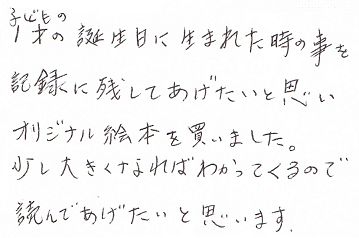 子どもの
1才の誕生日に生まれた時の事を
記録に残してあげたいと思い
オリジナル絵本を買いました。
少し大きくなればわかってくるので
読んであげたいと思います.